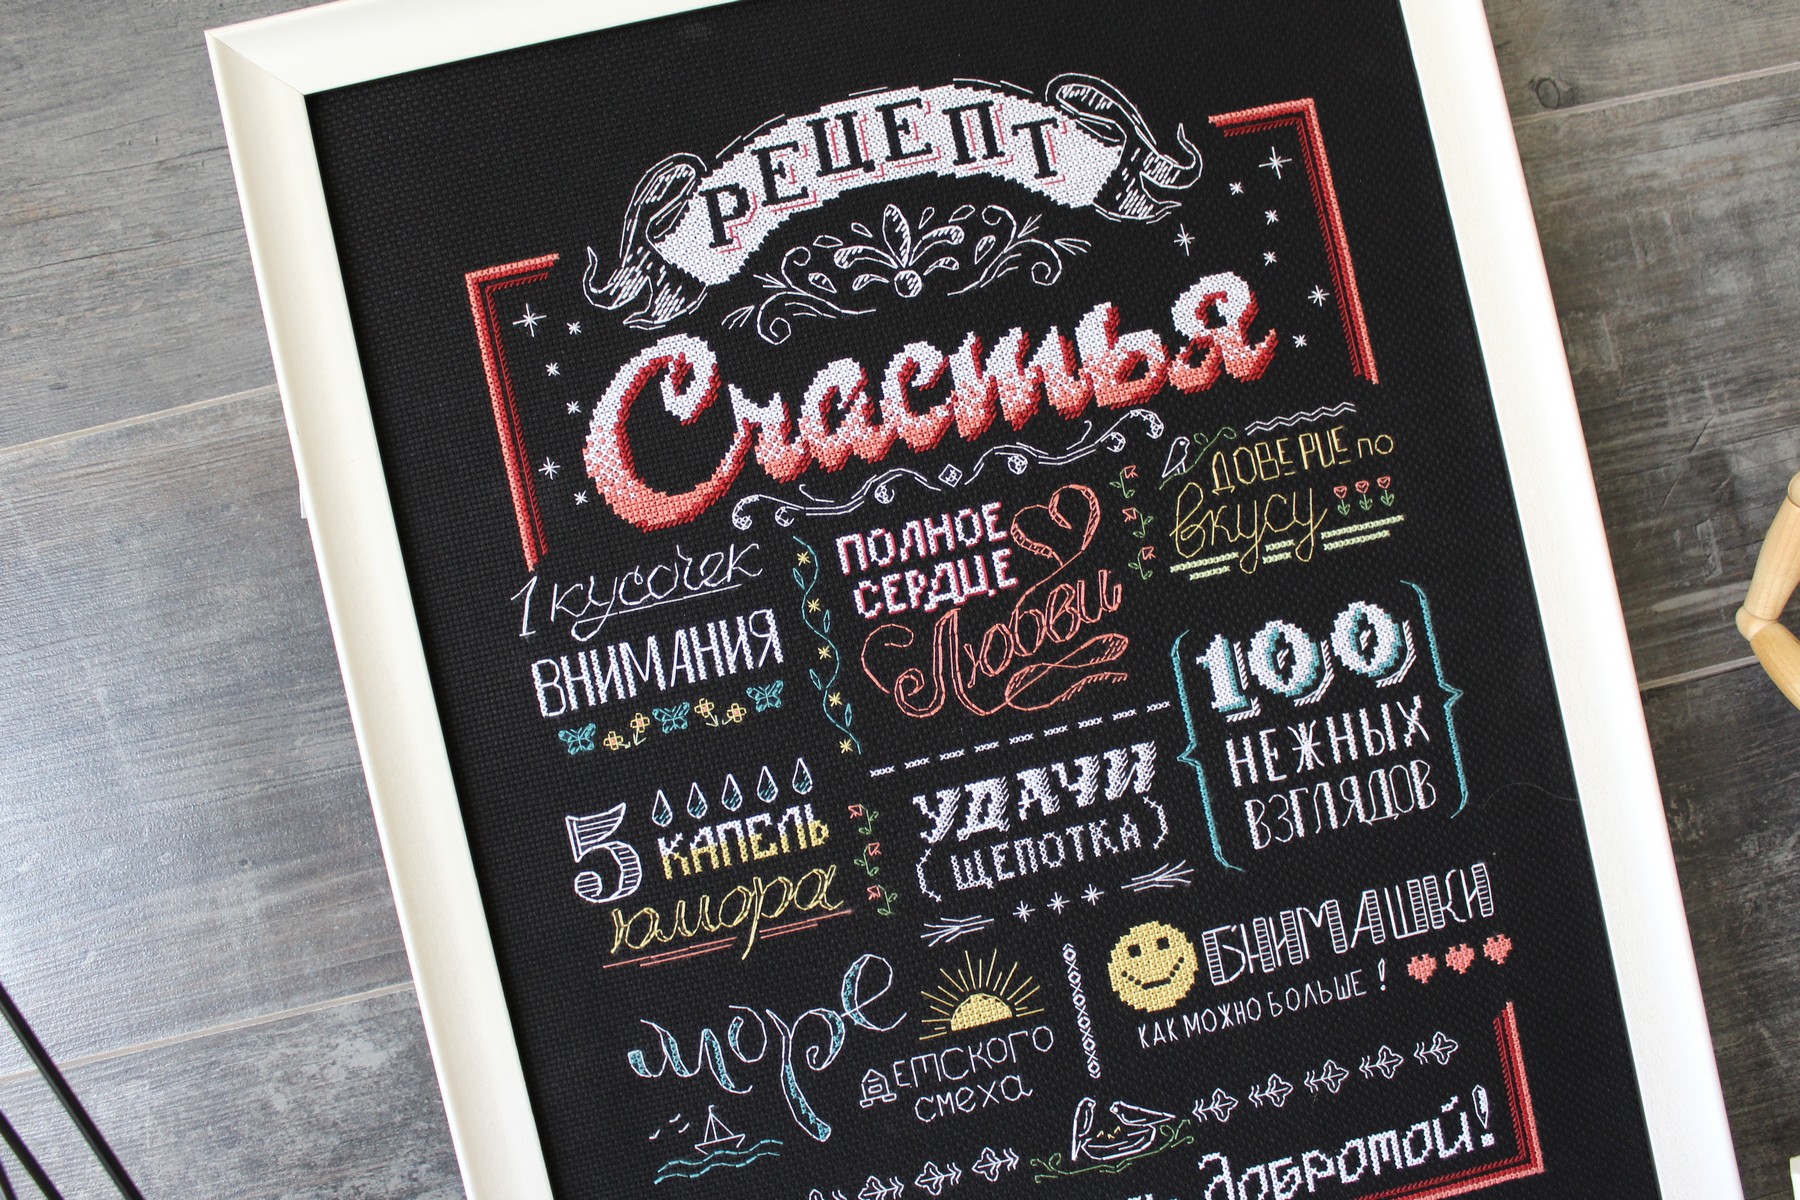 РЕЦЕПТ
Счастья
1 кусочек
ВНИМАНИЯ
ПОЛНОЕ
СЕРДЦЕ
Любви
ДОВЕРИЕ ПО
вкусу
100
НЕЖНЫХ
ВЗГЛЯДОВ
5 КАПЕЛЬ
юмора
УДАЧИ
(ЩЕПОТКА)
море
ДЕТСКОГО
смеха
ОБНИМАШКИ
КАК МОЖНО БОЛЬШЕ!
добротой!